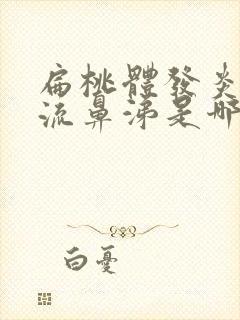 扁桃體發炎
流鼻涕是哪
白憂